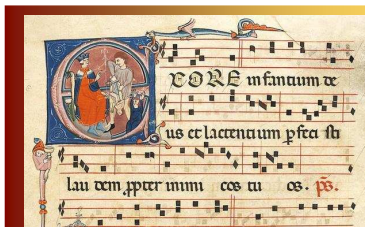 EX ORE infantium de
us et lactentium pfeci sti
lau dem ꝓpter inimi cos tu os. ps.